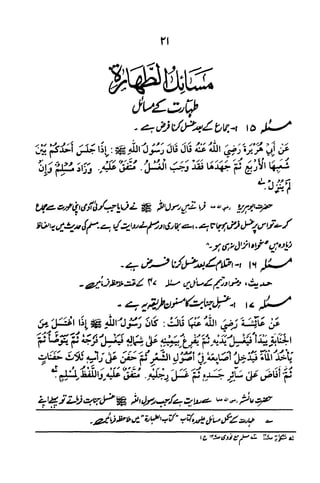 ۲۱
مَسَائِلُ الطَّهَارَةِ
طہارت کے مسائل
مسئلہ ۱۵ ۱- جماع کے بعد غسل کرنا فرض ہے۔
عَنْ أَبِي هُرَيْرَةَ رَضِيَ اللهُ عَنْهُ قَالَ قَالَ رَسُولُ اللهِ ﷺ: إِذَا جَلَسَ أَحَدُكُمْ بَيْنَ
شُعَبِهَا الْأَرْبَعِ ثُمَّ جَهَدَهَا فَقَدْ وَجَبَ الْغُسْلُ. مُتَّفَقٌ عَلَيْهِ. وَزَادَ مُسْلِمٌ وَإِنْ
لَمْ يُنْزِلْ
حضرت ابوہریرہ فرماتے ہیں رسول اللہ ﷺ نے فرمایا جب کوئی آدمی اپنی عورت سے جماع
کرے تو اس پر غسل فرض ہو جاتا ہے۔ اسے بخاری اور مسلم نے روایت کیا ہے۔ مسلم کی حدیث میں یہ الفاظ
زیادہ ہیں "خواہ انزال نہ بھی ہو"
مسئلہ ۱۶ ۱- احتلام کے بعد غسل کرنا فرض ہے۔
حدیث، وضو اور تیمم کے مسائل میں مسئلہ ۳۷ کے تحت ملاحظہ فرمائیں۔
مسئلہ ۱۷ ۱- غسل جنابت کا مسنون طریقہ یہ ہے۔
عَنْ عَائِشَةَ رَضِيَ اللهُ عَنْهَا قَالَتْ: كَانَ رَسُولُ اللهِ ﷺ إِذَا اغْتَسَلَ مِنَ
الْجَنَابَةِ يَبْدَأُ فَيَغْسِلُ يَدَيْهِ ثُمَّ يُفْرِغُ بِيَمِينِهِ عَلَى شِمَالِهِ فَيَغْسِلُ فَرْجَهُ ثُمَّ يَتَوَضَّأُ ثُمَّ
يَأْخُذُ الْمَاءَ فَيُدْخِلُ أَصَابِعَهُ فِي أُصُولِ الشَّعْرِ ثُمَّ حَفَنَ عَلَى رَأْسِهِ ثَلَاثَ حَفَنَاتٍ
ثُمَّ أَفَاضَ عَلَى سَائِرِ جَسَدِهِ ثُمَّ غَسَلَ رِجْلَيْهِ. مُتَّفَقٌ عَلَيْهِ وَاللَّفْظُ لِمُسْلِمٍ
حضرت عائشہ سے روایت ہے کہ جب رسول اللہ ﷺ غسل جنابت فرماتے تو پہلے اپنے
طہارت کے مکمل مسائل علیحدہ کتاب "کتاب الطہارۃ" میں ملاحظہ فرمائیں۔